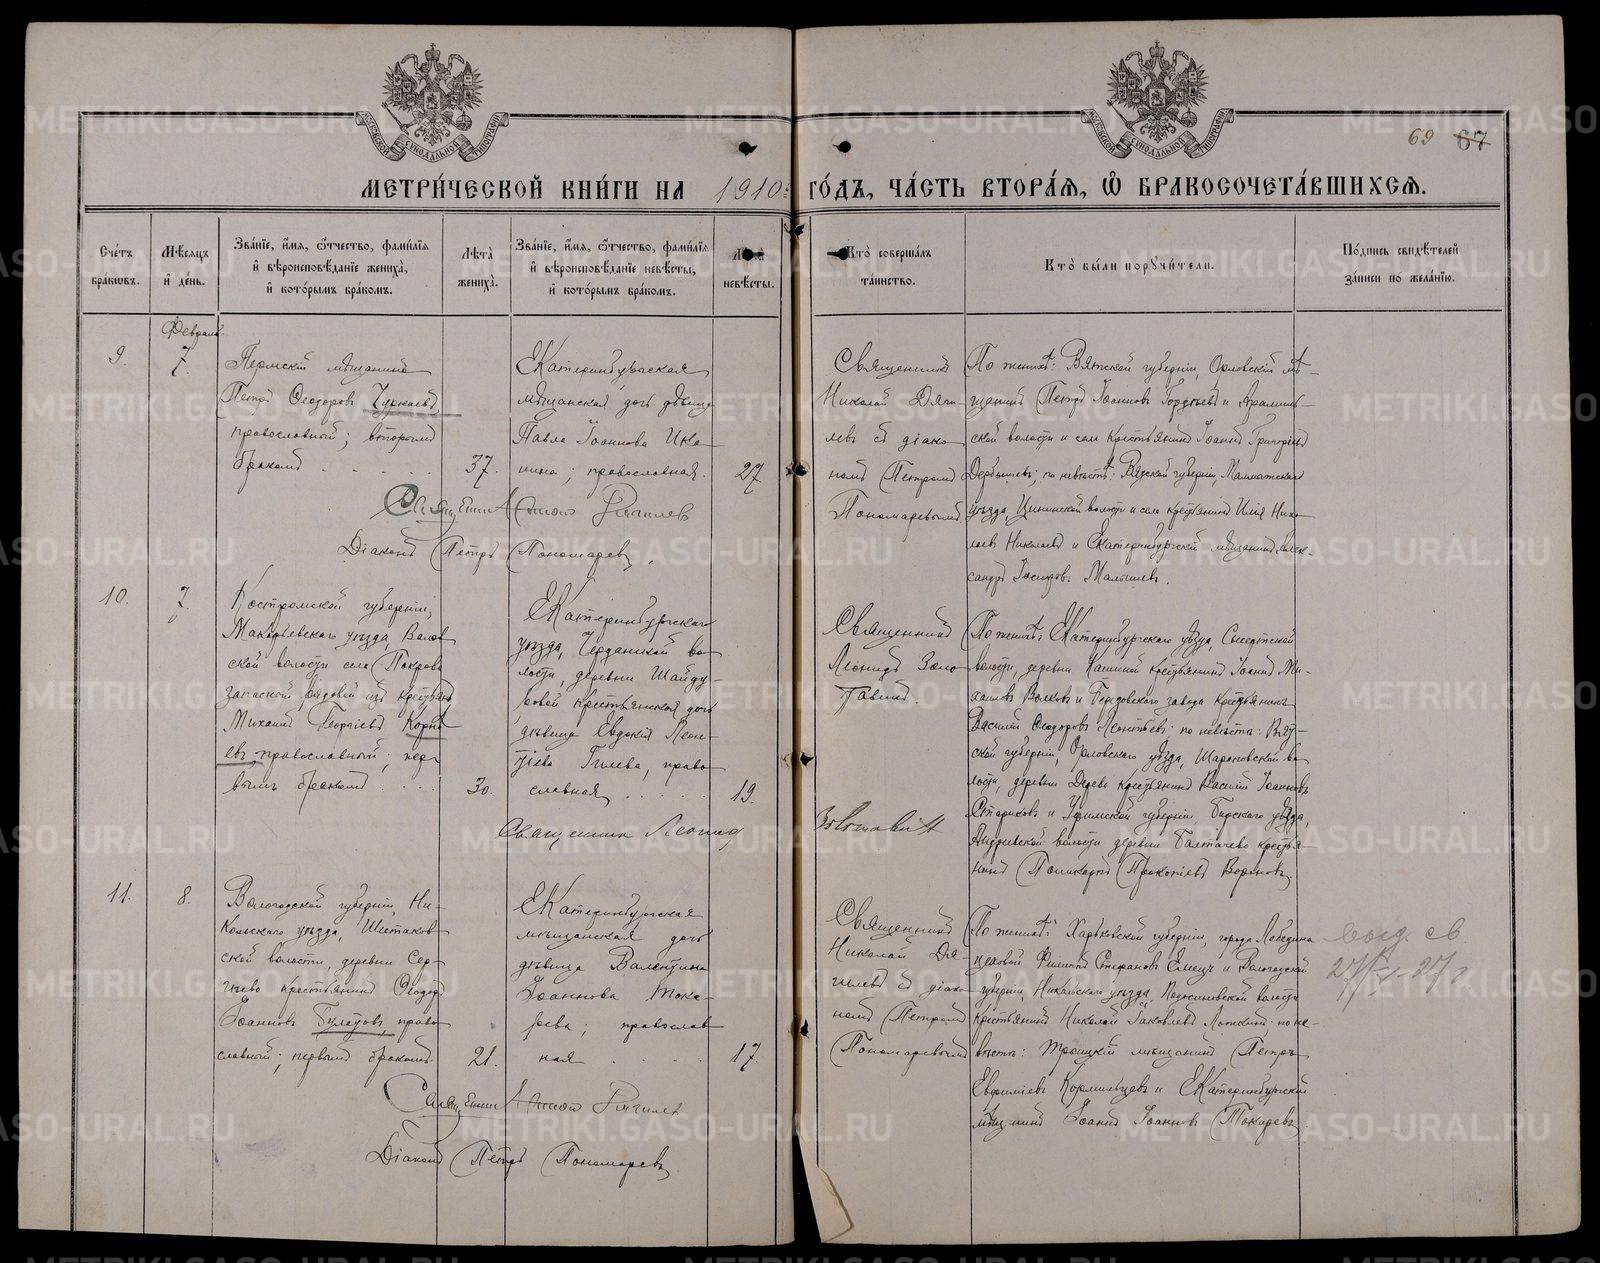 МЕТРИ́ЧЕСКОЙ КНИ́ГИ НА 1910 ГО́ДЪ, ЧА́СТЬ ВТОРА́Я, Ѽ БРАКОСОЧЕТА́ВШИХСЯ.
69 67
Сче́тъ бра́кѡвъ.
Мѣ́сяцъ и҆ де́нь.
Зва́нїе, и҆́мя, ѻ҆́тчество, фами́лїя
и҆ вѣроисповѣ́данїе жениха̀,
и҆ кото́рымъ бра́комъ.
Лѣта̀ жениха̀.
Зва́нїе, и҆́мя, ѻ҆́тчество, фами́лїя
и҆ вѣроисповѣ́данїе невѣ́сты,
и҆ кото́рымъ бра́комъ.
невѣ́сты.
Кто̀ соверша́лъ
та́инство.
Кто̀ бы́ли порꙋчи́тели.
По́дпись свидѣ́телей
за́писи по жела́нїю.
Февраль
9
7.
Пермскій мѣщанинъ
Петръ Ѳеодоровъ
православный; вторымъ
бракомъ
37.
Екатеринбургская
мѣщанская дочь дѣвица
Павла Іоаннова Ика-
нина; православная.
27
Священникъ
Николай Дяги-
левъ съ діако-
номъ Петромъ
Пономаревымъ
По женихѣ: Вятской губерніи, Орловскій мѣ-
щанинъ Петръ Іоанновъ Гордѣевъ и Арамиль-
ской волости и села крестьянинъ Іоаннъ Григорьевъ
Дербышевъ; по невѣстѣ: Вятской губерніи, Малмыжскаго
уѣзда, Ципинской волости и села крестьянинъ Илія Нико-
лаевъ Николаевъ и Екатеринбургскій мѣщанинъ Алек-
сандръ Іосифовъ Малышевъ.
Діаконъ Петръ Пономаревъ.
10.
7.
Костромской губерніи,
Макарьевскаго уѣзда,
ской волости села Покрова
запасной рядовой изъ крестьянъ
Михаилъ Георгіевъ Корни-
евъ, православный; пер-
вымъ бракомъ
30.
Екатеринбургскаго
уѣзда, Черданской во-
лости, деревни Шайду-
ровой крестьянская дочь
дѣвица Евдокія Леон-
тіева Гилева, право-
славная
19.
Священникъ
Леонидъ Золо-
тавинъ.
По женихѣ: Екатеринбургскаго уѣзда, Сысертской
волости, деревни Кашиной крестьянинъ Іоаннъ Ми-
хаиловъ Волковъ и завода крестьянинъ
Василій Ѳеодоровъ Леонтьевъ; по невѣстѣ: Вят-
ской губерніи, Орловскаго уѣзда, во-
лости, деревни крестьянинъ Василій Іоанновъ
Стариковъ и Уфимской губерніи, Бирскаго уѣзда,
Андреевской волости деревни Балтачево крестья-
нинъ Поликарпъ Прокопіевъ Вороновъ.
Священникъ Леонид Золотавин
11.
8.
Вологодской губерніи, Ни-
кольскаго уѣзда, Шестаков-
ской волости, деревни Сер-
гѣево крестьянинъ Ѳеодоръ
Іоанновъ Булатовъ, право-
славный; первымъ бракомъ.
21.
Екатеринбургская
мѣщанская дочь
дѣвица Валентина
Іоаннова Тока-
рева; православ-
ная
17.
Священникъ
Николай Дя-
гилевъ съ діако-
номъ Петромъ
Пономаревымъ
По женихѣ: Харьковской губерніи, города Лебедина
цеховой Филиппъ Стефановъ Емецъ и Вологодской
губерніи, Никольскаго уѣзда, Подосиновской волости
крестьянинъ Николай Іаковлевъ Лапкинъ; по не-
вѣстѣ: Троицкій мѣщанинъ Петръ
Евфиміевъ Кормильцевъ и Екатеринбургскій
мѣщанинъ Іоаннъ Іоанновъ Токаревъ.
Діаконъ Петръ Пономаревъ
METRIKI.GASO-URAL.RU